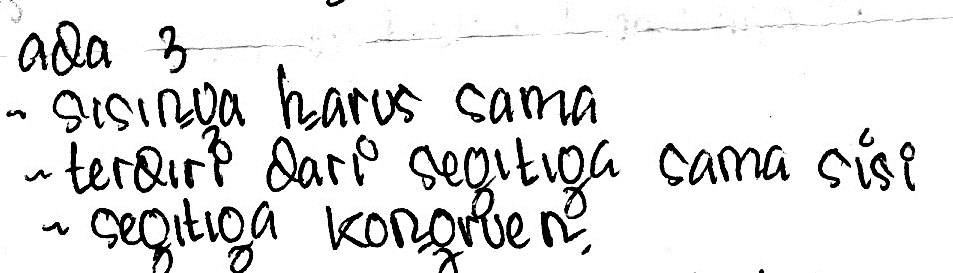 ada 3
- sisinya harus sama
- terdiri dari segitiga sama sisi
- segitiga kongruen.